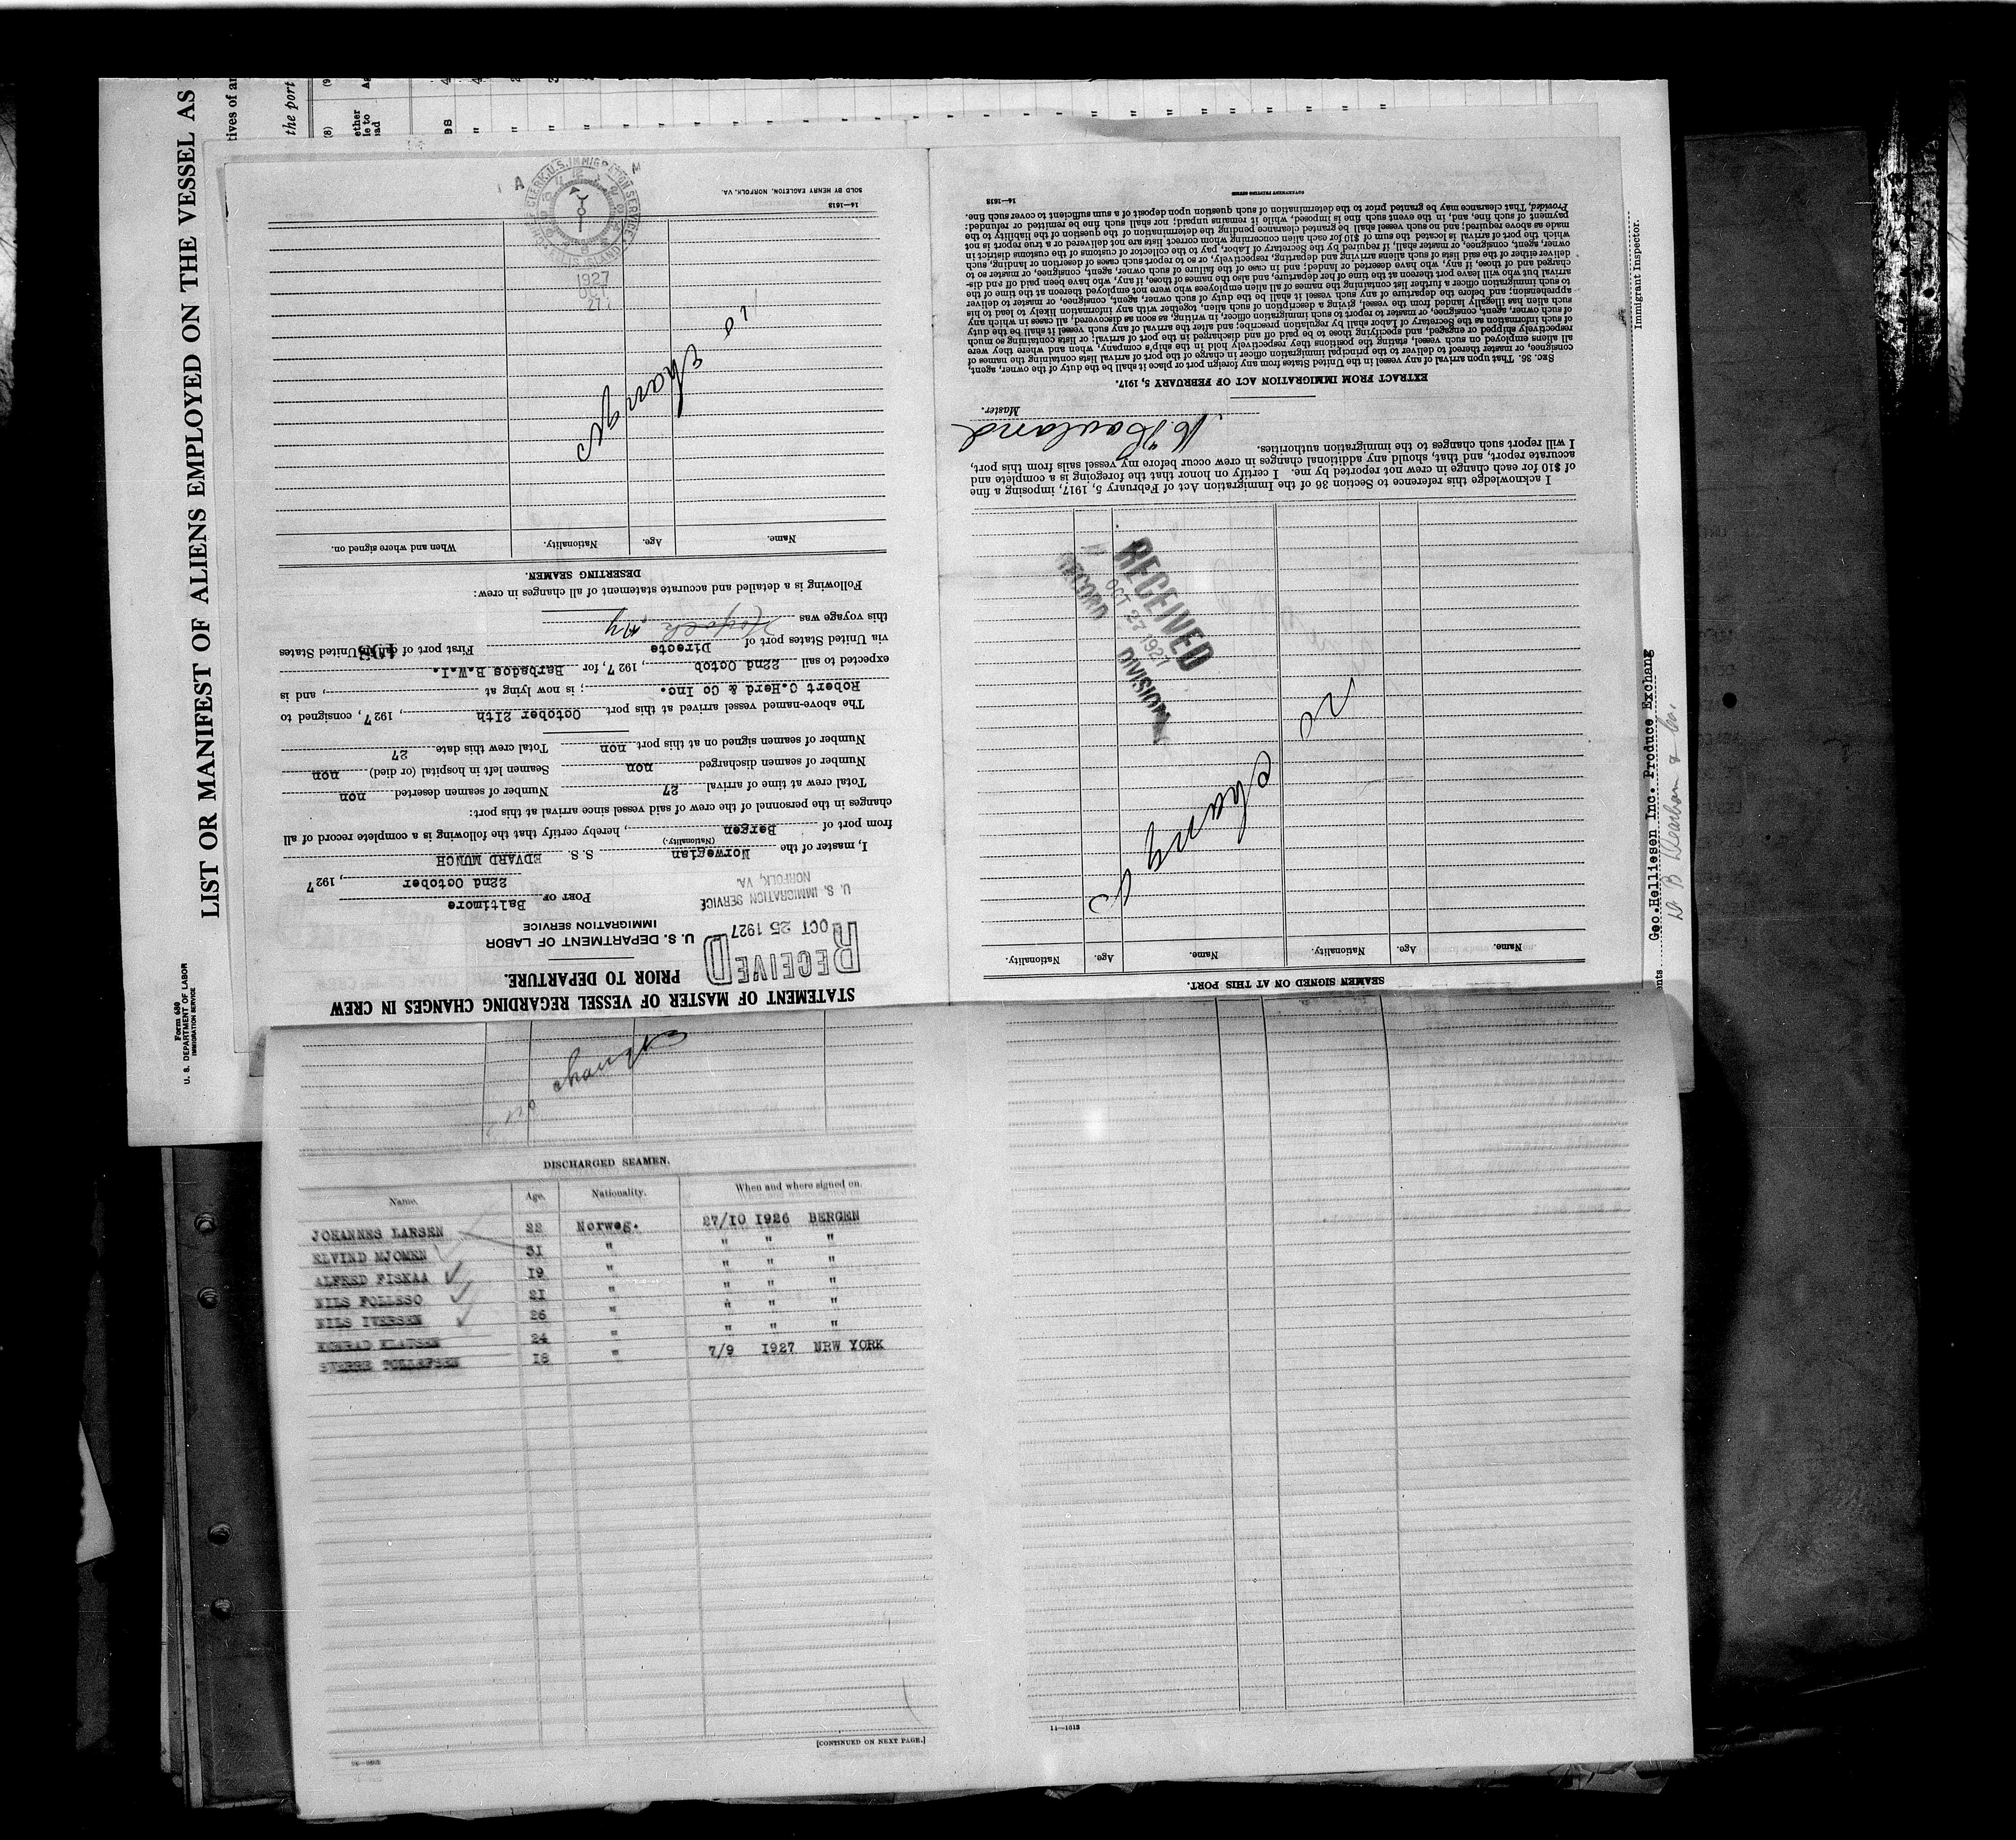 LIST OR MANIFEST OF ALIENS EMPLOYED ON THE VESSEL AS
Form 680
U. S. DEPARTMENT OF LABOR
IMMIGRATION SERVICE
tives of
the port
(8)
(9)
ether
le to
STATEMENT OF MASTER OF VESSEL REGARDING CHANGES IN CREW
PRIOR TO DEPARTURE.
RECEIVED
OCT 25 1927
U. S. IMMIGRATION SERVICE
NORFOLK, VA.
U. S. DEPARTMENT OF LABOR
IMMIGRATION SERVICE
PORT OF Baltimore
22nd October, 1927
I, master of the Norwegian S. S. EDVARD MUNCH
(Nationality.)
from port of Bergen, hereby certify that the following is a complete record of all
changes in the personnel of the crew of said vessel since arrival at this port:
Total crew at time of arrival 27 Number of seamen deserted non
Number of seamen discharged non Seamen left in hospital (or died) non
Number of seamen signed on at this port non Total crew this date 27
The above-named vessel arrived at this port October 2Ith, 1927, consigned to
Robert C.Herd & Co Inc. ; is now lying at , and is
expected to sail 22nd Octob, 1927, for Barbados B.W.I.
via United States port of Directe First port of call in United States
this voyage was
Following is a detailed and accurate statement of all changes in crew:
DESERTING SEAMEN.
Name. Age. Nationality. When and where signed on.
no change
14—1618
SOLD BY HENRY EAGLETON, NORFOLK, VA.
CLERK, U.S. IMMIGRATION SERVICE
ELLIS ISLAND
1927
27
SEAMEN SIGNED ON AT THIS PORT.
Name. Age. Nationality. Name. Age. Nationality.
no change
RECEIVED
OCT 27 1927
RECORD DIVISION
I acknowledge this reference to Section 36 of the Immigration Act of February 5, 1917, imposing a fine
of $10 for each change in crew not reported by me. I certify on honor that the foregoing is a complete and
accurate report, and that, should any additional changes in crew occur before my vessel sails from this port,
I will report such changes to the immigration authorities.
Master.
EXTRACT FROM IMMIGRATION ACT OF FEBRUARY 5, 1917.
SEC. 36. That upon arrival of any vessel in the United States from any foreign port or place it shall be the duty of the owner, agent,
consignee, or master thereof to deliver to the principal immigration officer in charge of the port of arrival lists containing the names of
all aliens employed on such vessel, stating the positions they respectively hold in the ship's company, when and where they were
respectively shipped or engaged, and specifying those to be paid off and discharged in the port of arrival; or lists containing so much
of such information as the Secretary of Labor shall by regulation prescribe; and after the arrival of any such vessel it shall be the duty
of such owner, agent, consignee, or master to report to such immigration officer, in writing, as soon as discovered, all cases in which any
such alien has illegally landed from the vessel, giving a description of such alien, together with any information likely to lead to his
apprehension; and before the departure of any such vessel it shall be the duty of such owner, agent, consignee, or master to deliver
to such immigration officer a further list containing the names of all alien employees who were not employed thereon at the time of the
arrival but who will leave port thereon at the time of her departure, and also the names of those, if any, who have been paid off and dis-
charged and of those, if any, who have deserted or landed; and in case of the failure of such owner, agent, consignee, or master to
deliver either of the said lists of such aliens arriving and departing, respectively, or so to report such cases of desertion or landing, such
owner, agent, consignee, or master, shall, if required by the Secretary of Labor, pay to the collector of customs of the customs district in
which the port of arrival is located the sum of $10 for each alien concerning whom correct lists are not delivered or a true report is not
made as above required; and no such vessel shall be granted clearance pending the determination of the question of the liability to the
payment of such fine, and, in the event such fine is imposed, while it remains unpaid; nor shall such fine be remitted or refunded:
Provided, That clearance may be granted prior to the determination of such question upon deposit of a sum sufficient to cover such fine.
14—1618
GOVERNMENT PRINTING OFFICE
Immigrant Inspector.
Geo.Helliesen Inc. Produce Exchang
no change
DISCHARGED SEAMEN.
Name. Age. Nationality. When and where signed on.
JOHANNES LARSEN 22 Norweg. 27/10 1926 BERGEN
EIVIND MJOMEN 31 " " " "
ALFRED FISKAA 19 " " " "
NILS FOLLESO 21 " " " "
NILS IVERSEN 26 " " " "
KONRAD KLAUSEN 24 " " " "
SVERRE TOLLEFSEN 18 " 7/9 1927 NRW YORK
[CONTINUED ON NEXT PAGE.]
14—1613